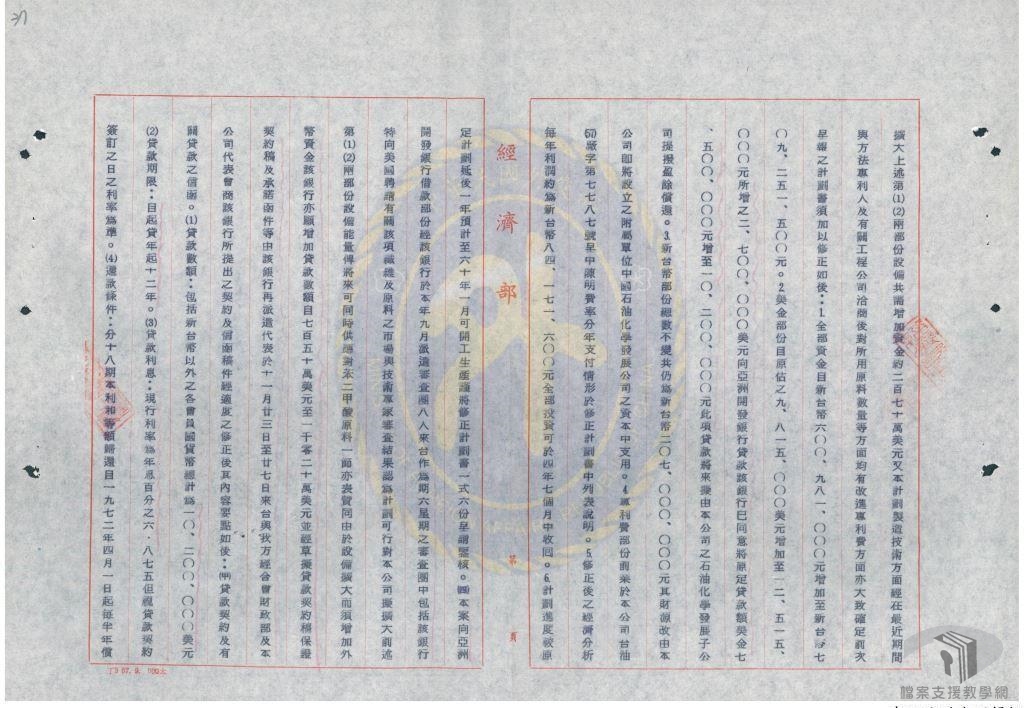 擴大上述第(1)(2)兩部份設備共需增加資金約二百七十萬美元又本計劃製造技術方面經在最近期間
與方法專利人及有關工程公司洽商後對所用原料數量等方面均有改進專利費方面亦大致確定前次
呈報之計劃書須加以修正如後：1.全部資金自新台幣六〇〇、九八一、〇〇〇元增加至新台幣七
〇九、二五一、五〇〇元。2.美金部份自原估之九、八一五、〇〇〇美元增加至一二、五一五、
〇〇〇元所增之二、七〇〇、〇〇〇美元向亞洲開發銀行貸款該銀行已同意將原定貸款額美金七
、五〇〇、〇〇〇元增至一〇、二〇〇、〇〇〇元此項貸款將來擬由本公司之石油化學發展子公
司提撥盈餘償還。3.新台幣部份總數不變共仍為新台幣二〇七、〇〇〇、〇〇〇元其財源改由本
公司即將設立之附屬單位中國石油化學發展公司之資本中支用。4.專利費部份前業於本公司台油
(57)廠字第七七八七號呈中陳明費率分年支付情形於修正計劃書中列表說明。5.修正後之經濟分析
每年利潤約為新台幣八四、一七一、六〇〇元全部投資可於四年七個月中收回。6.計劃進度較原
經濟部
第 頁
定計劃延後一年預計至六十年一月可開工生產謹將修正計劃書一式六份呈請鑒核。㈣本案向亞洲
開發銀行借款部份經該銀行於本年九月派遣審查團八人來台作為期六星期之審查團中包括該銀行
特向美國聘請有關該項纖維及原料之市場與技術專家審查結果認為計劃可行對本公司擬擴大前述
第(1)(2)兩部份設備能量俾將來可同時供應對苯二甲酸原料一節亦表贊同由於設備擴大而須增加外
幣資金該銀行亦願增加貸款數額自七百五十萬美元至一千零二十萬美元並經草擬貸款契約稿保證
契約稿及承諾函件等由該銀行再派遣代表於十一月廿三日至廿七日來台與我方經合會財政部及本
公司代表會商該銀行所提出之契約及信函稿件經適度之修正後其內容要點如後：㈠貸款契約及有
關貸款之信函。(1)貸款數額：包括新台幣以外之各會員國貨幣總計為一〇、二〇〇、〇〇〇美元
(2)貸款期限：自起貸年起十二年。(3)貸款利息：現行利率為年息百分之六．八七五但視貸款契約
簽訂之日之利率為準。(4)還款條件：分十八期本利和等額歸還自一九七二年四月一日起每半年償
檔案支援教學網